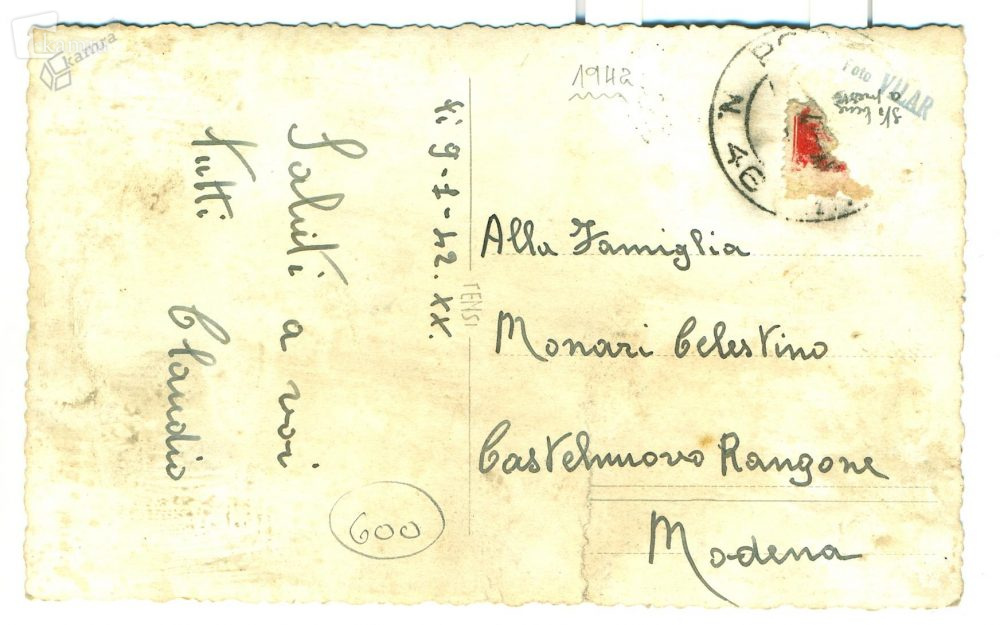 kamra
1942
Foto VILAR
N. 46
Li 9-1-42.XX.
Saluti a voi
tutti
Claudio
TENSI
Alla Famiglia
Monari Celestino
Castelnuovo Rangone
Modena
600